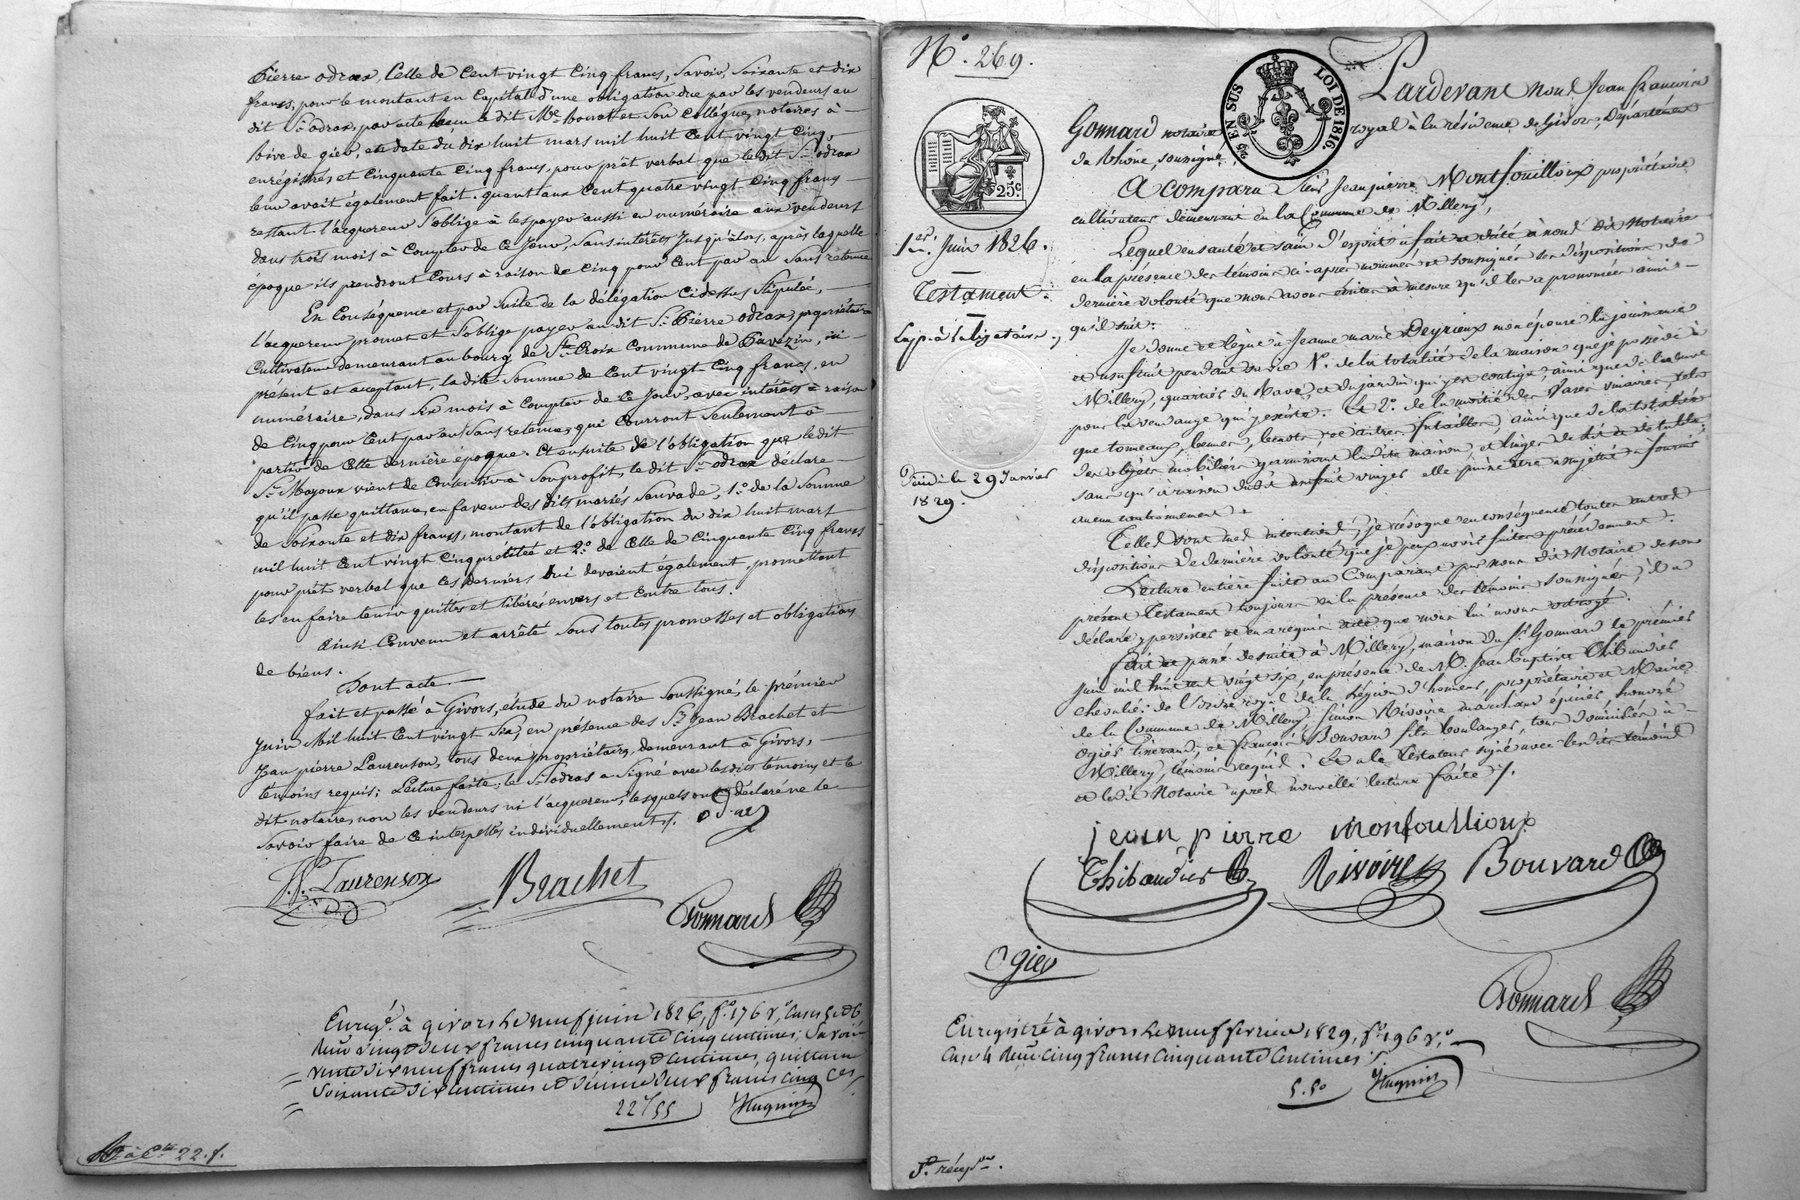 Pierre odras, Celle de Cent vingt Cinq francs, Savoir, Soixante et dix
francs, pour le montant en Capital d'une obligation due par les vendeurs au
dit Sr. odras, par acte reçu le dit Me. bonnot et Son Collègue, notaires à
Rive de gier, en date du dix huit mars mil huit Cent vingt Cinq,
enrégistré, et Cinquante Cinq francs, pour prêt verbal que le dit Sr. odras
leur avait également fait. quant aux Cent quatre vingt Cinq francs
restant l'acquereur S'oblige à les payer aussi en numéraire aux vendeurs
dans trois mois à Compter de Ce Jour, Sans intérêts Jusqu'alors, après laquelle
époque ils prendront Cours à raison de Cinq pour Cent par an Sans retenue
En Conséquence et par Suite de la délégation Cidessus Stipulée,
l'acquereur promet et S'oblige payer au dit Sr. Pierre odras, propriétaire
Cultivateur demeurant au bourg de Ste. Croix Commune de Pavezin, ici
présent et acceptant, la dite Somme de Cent vingt Cinq francs, en
numéraire, dans Six mois à Compter de Ce Jour, avec intérêts à raison
de Cinq pour Cent par an Sans retenue, qui Courront Seulement à
partir de Cette dernière époque. Et ensuite de l'obligation que le dit
Sr. Mayoux vient de Consentir à Son profit, le dit Sr. odras déclare
qu'il passe quittance, en faveur des dits mariés Sauvade, 1o. de la Somme
de Soixante et dix francs, montant de l'obligation du dix huit mars
mil huit Cent vingt Cinq précitée et 2o. de Celle de Cinquante Cinq francs
pour prêt verbal que Ces derniers lui devaient également. promettant
les en faire tenir quittes et libérés envers et Contre tous.
Ainsi Convenu et arrêté Sous toutes promesses et obligations
de biens.
Dont acte.
fait et passé à Givors, étude du notaire Soussigné, le prémier
Juin Mil huit Cent vingt Six, en présence des Srs. Jean Brachet et
Jean pierre Laurenson, tous deux propriétaires, demeurant à Givors,
témoins requis; Lecture faite, le Sr. odras a Signé avec les dits témoins et le
dit notaire, non les vendeurs ni l'acquereur, lesquels ont déclaré ne le
Savoir faire de Ce interpellés individuellement ./.
odras
J.P. Laurenson
Brachet
Gonnard
Enregé. à givors le neuf juin 1826, fo. 176 Ro. Cases 5 et 6
Reçu vingt deux francs cinquante cinq centimes; Savoir
vente dix neuf francs quatre vingt centimes, quittance
Soixante dix centimes et Deux francs cinq ces.
22,55
Huguin
22. f.
No. 269.
EN SUS
LOI DE 1816.
25c
Pardevant nous Jean françois
Gonnard notaire royal à la résidence de Givors, Département
du Rhône, soussigné.
A comparu Sieur Jeanpierre Montfouilloux propriétaire
cultivateur demeurant en la Commune de Millery,
1er. Juin 1826.
Testament.
Lequel en santé et sain d'esprit a fait et dicté à nous dit Notaire
en la présence des témoins ci-après nommés et soussignés ses dispositions de
dernière volonté que nous avons écrites à mesure qu'il les a prononcées ainsi
qu'il suit:
Je donne et lègue à Jeanne marie Deyrieux mon épouse la jouissance
et usufruit pendant sa vie 1o. de la totalité de la maison que je possède à
Millery, quartier du Ravé, et du jardin qui y est contigu, ainsi que de la cuve
pour la vendange qui y existe. Et 2o. de la moitié des vases vinaires, tels
que tonneaux, bennes, benots et autres futailles, ainsi que de la totalité
des objets mobiliers garnissant la dite maison, et linges de lit et de table,
sans qu'à raison du dit usufruit viager elle puisse être assujettie à fournir
aucun cautionnement.
Jeudi le 29 Janvier
1829.
Telles sont mes intentions; je révoque en conséquence toutes autres
dispositions de dernière volonté que je peux avoir faites précédemment.
Lecture entière faite au Comparant par nous dit Notaire de son
présent Testament toujours en la présence des témoins soussignés, il a
déclaré y persister et en a requis acte que nous lui avons octroyé.
Fait et passé de suite à Millery, maison du Sr. Gonnard le prémier
juin mil huit cent vingt six, en présence de M. Jean baptiste Thibaudier
chevalier de l'ordre royal de la Légion d'honneur, propriétaire et Maire
de la Commune de Millery, Simon Rivoire marchand épicier, honoré
Ogier tisserand, et francois Bouvard fils boulanger, tous domiciliés à
Millery, témoins requis. Et a le testateur signé avec lesdits témoins
et ledit Notaire après nouvelle lecture faite ./.
jean pierre monfoullioux
Thibaudier
Rivoire
Bouvard
Ogier
Gonnard
Enregistré à givors le neuf fevrier 1829, fo. 196 Ro.
Case 4 Reçu cinq francs cinquante centimes ./.
5.50
Huguin